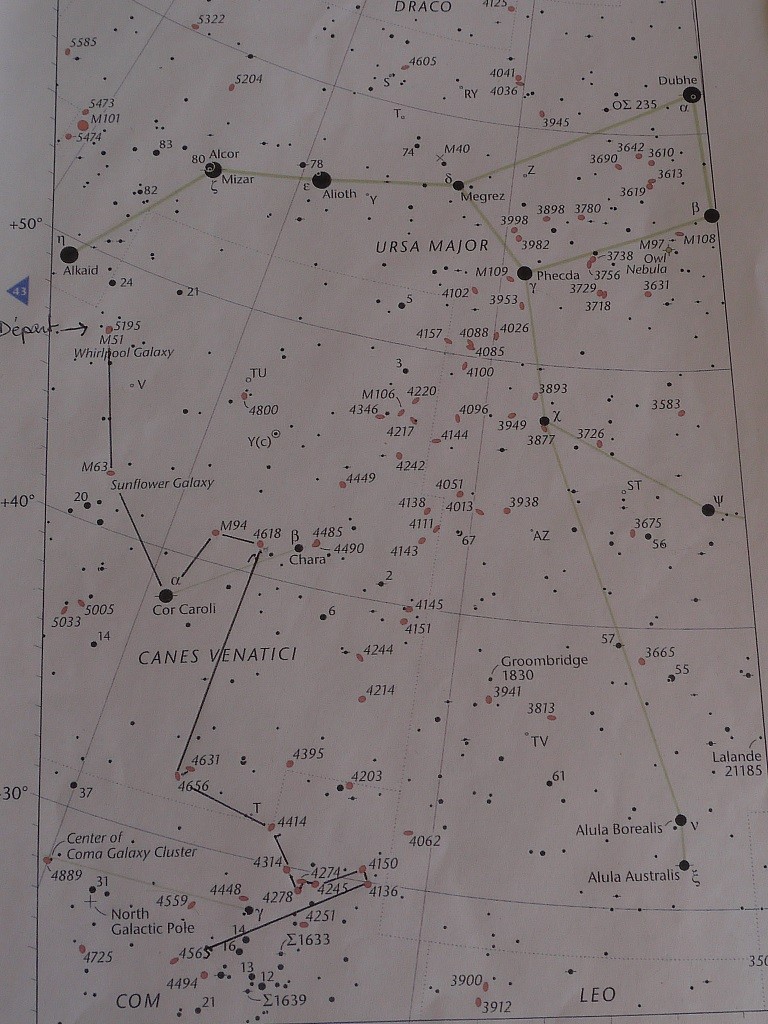 DRACO
4125
5322
5585
4605
S
5204
4041
4036
RY
Dubhe
α
ΟΣ 235
5473
M101
5474
T
3945
83
74
M40
3642
3610
80
Alcor
Mizar
ζ
78
ε
Alioth
δ
Megrez
Z
3690
3613
3619
82
Y
β
+50°
η
Alkaid
3998
3898
3780
3982
URSA MAJOR
M108
M97
Owl
Nebula
3738
3756
M109
Phecda
γ
43
24
21
4102
3953
3729
3718
3631
5
Départ
5195
M51
Whirlpool Galaxy
4157
4088
4026
4085
V
TU
3
4100
4800
M106
4220
4346
4217
4096
3893
3949
χ
3877
3583
3726
Y(c)
4144
4242
M63
Sunflower Galaxy
4449
4051
ST
ψ
+40°
20
4138
4013
3938
M94
4618
β
4485
4490
Chara
4111
4143
67
AZ
3675
56
α
Cor Caroli
2
5005
5033
6
4145
4151
14
57
CANES VENATICI
4244
3665
55
Groombridge
1830
4214
3941
3813
TV
Lalande
21185
4631
4656
4395
4203
61
-30°
37
T
4414
Alula Borealis
ν
Center of
Coma Galaxy Cluster
4889
4062
4314
4274
4150
Alula Australis
ξ
31
4448
4559
4278
4245
4136
North
Galactic Pole
γ
4251
14
16
Σ1633
4565
4725
350
4494
13
12
3900
COM
21
Σ1639
LEO
3912